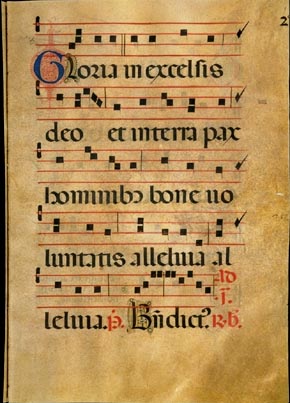 2
Gloria in excelsis
deo et in terra pax
hominibꝰ bone uo
luntatis alleluia al
ad
leluia. p̄. Bn̄dictꝰ R.b.